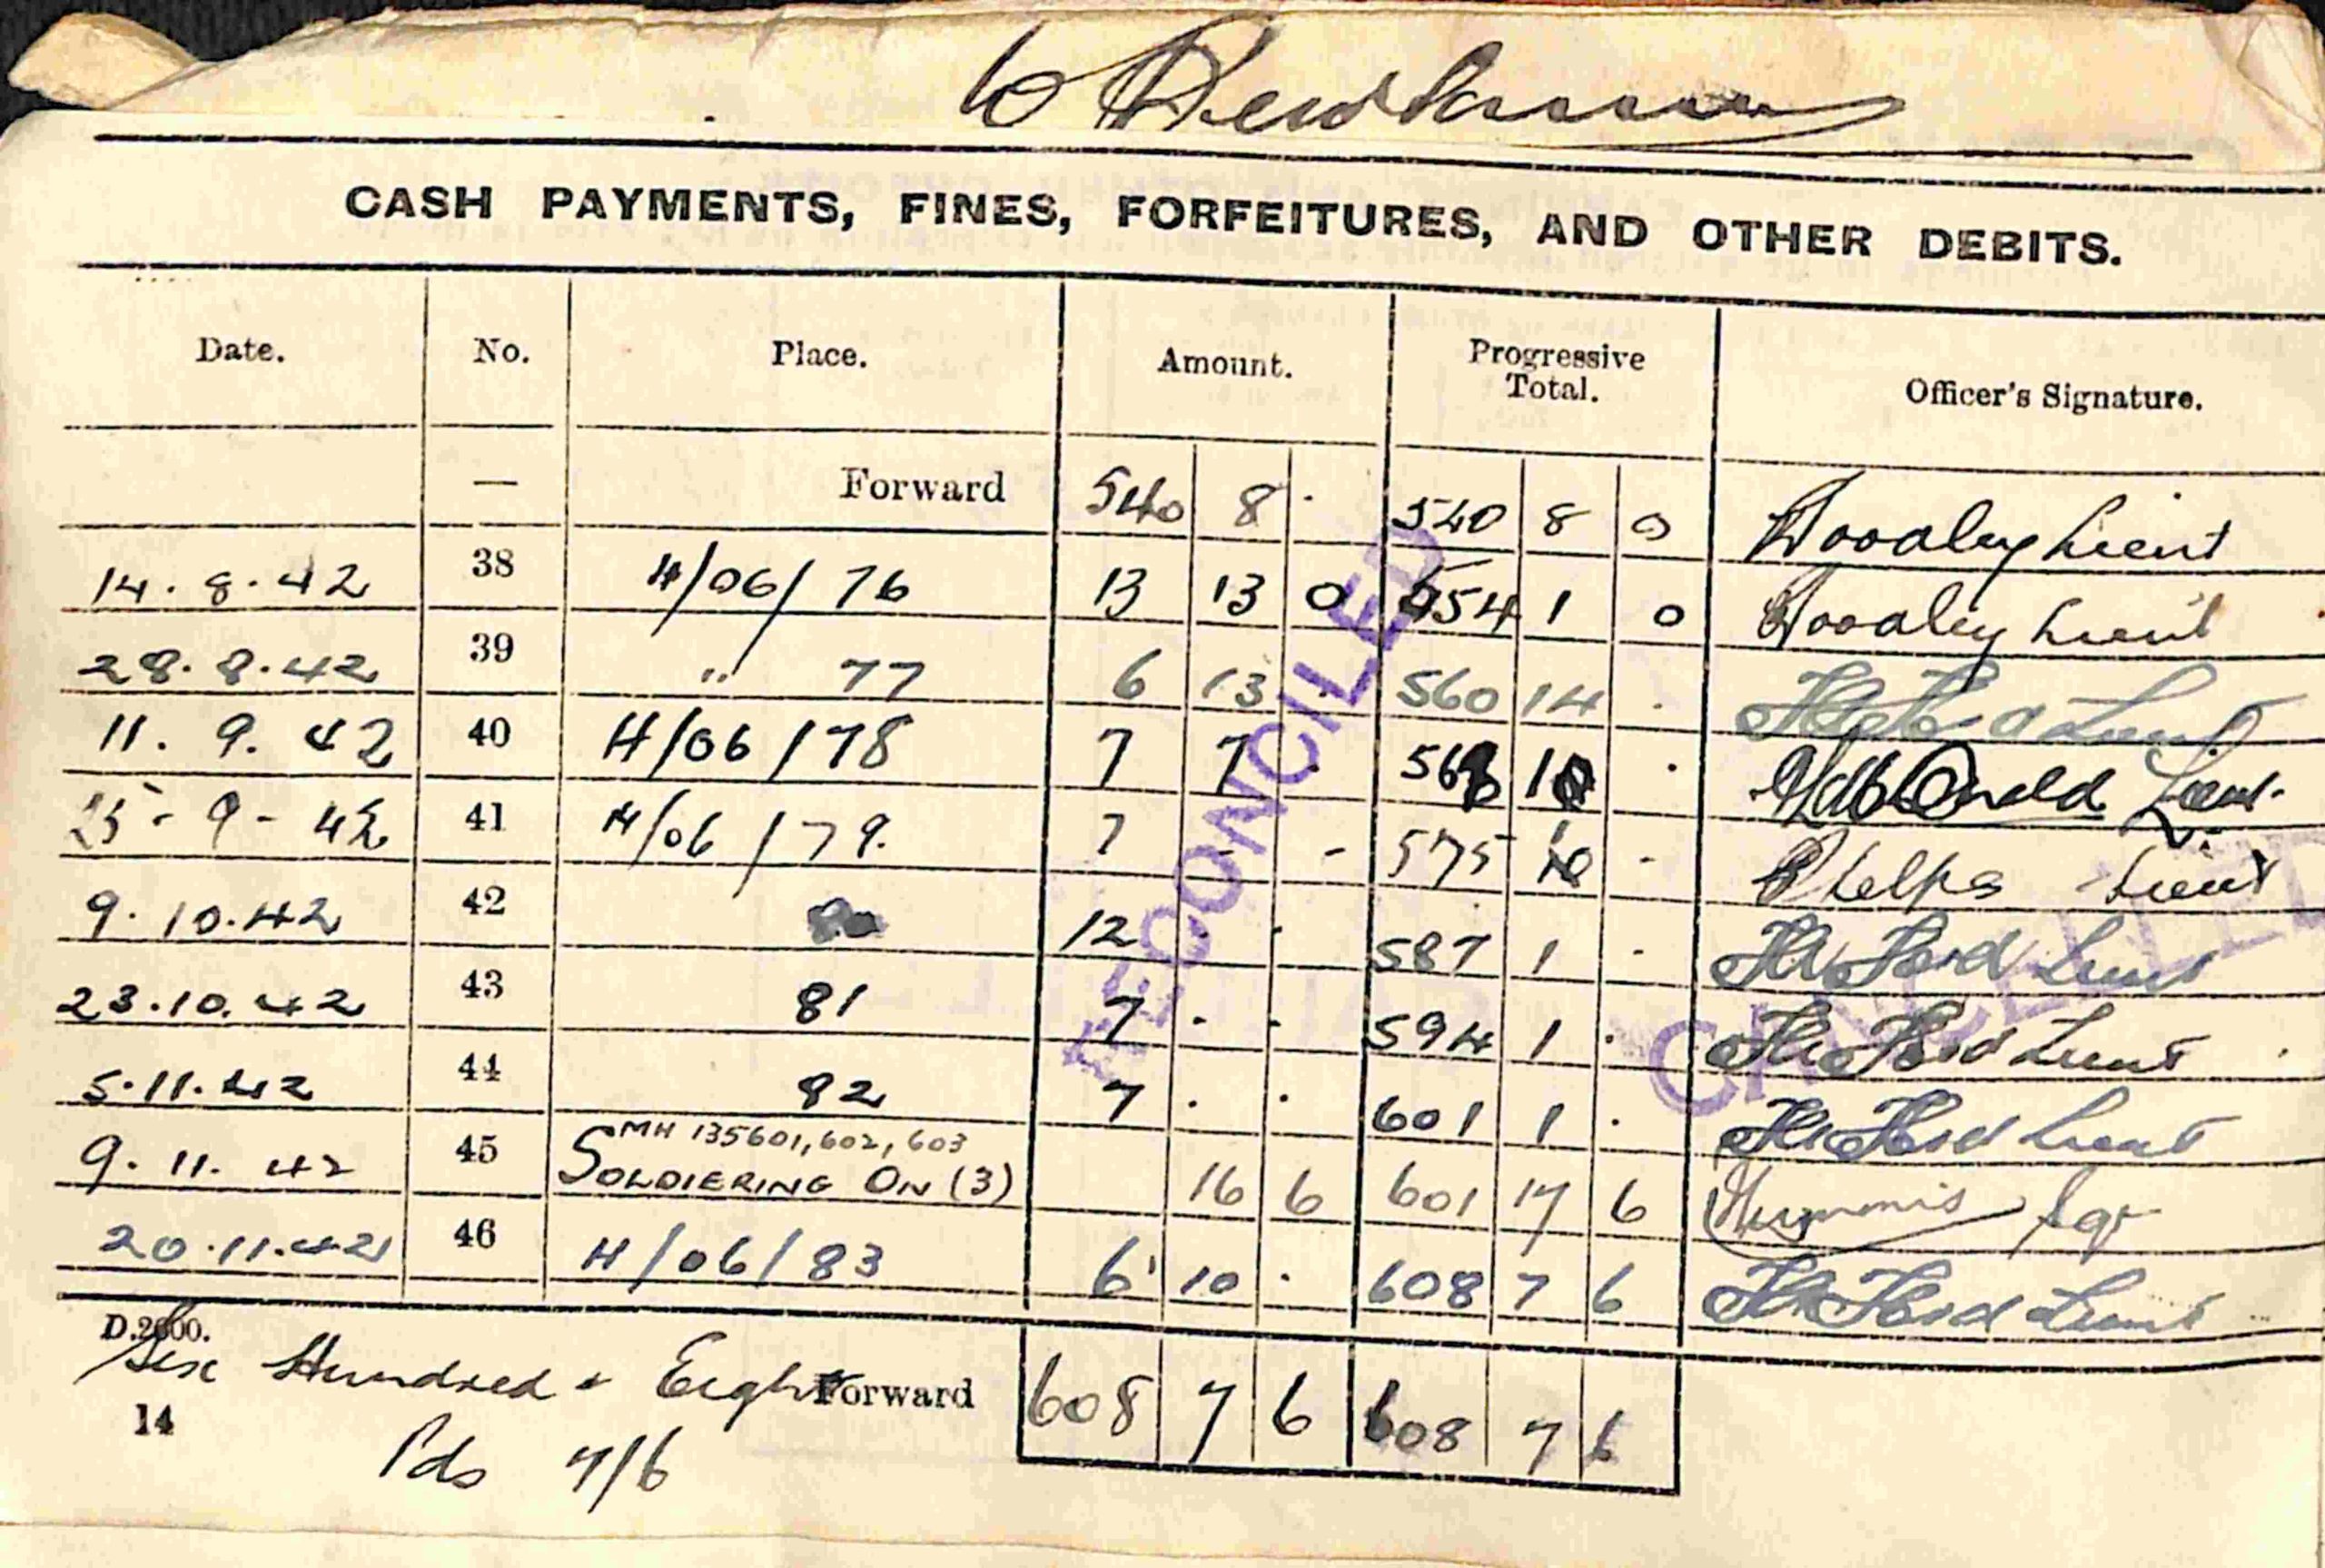 CASH PAYMENTS, FINES, FORFEITURES, AND OTHER DEBITS.
Date. No. Place. Amount. Progressive Total. Officer's Signature.
— Forward 540 8 · 540 8 0 Lieut
14.8.42 38 H/06/76 13 13 0 554 1 0 Lieut
28.8.42 39 " 77 6 13 · 560 14 · Lieut
11.9.42 40 H/06/78 7 7 · 568 1 · Lieut
25-9-42 41 H/06/79. 7 - - 575 1 - Phelps Lieut
9.10.42 42 12 · · 587 1 - Lieut
23.10.42 43 81 7 · · 594 1 · Lieut
5.11.42 44 82 7 · · 601 1 · Lieut
9.11.42 45 MH 135601, 602, 603
SOLDIERING ON (3) 16 6 601 17 6
20.11.42 46 H/06/83 6 10 · 608 7 6 Lieut
RECONCILED
CANCELLED
D.2600.
Six Hundred & Eight Forward 608 7 6 608 7 6
14
Pds 7/6